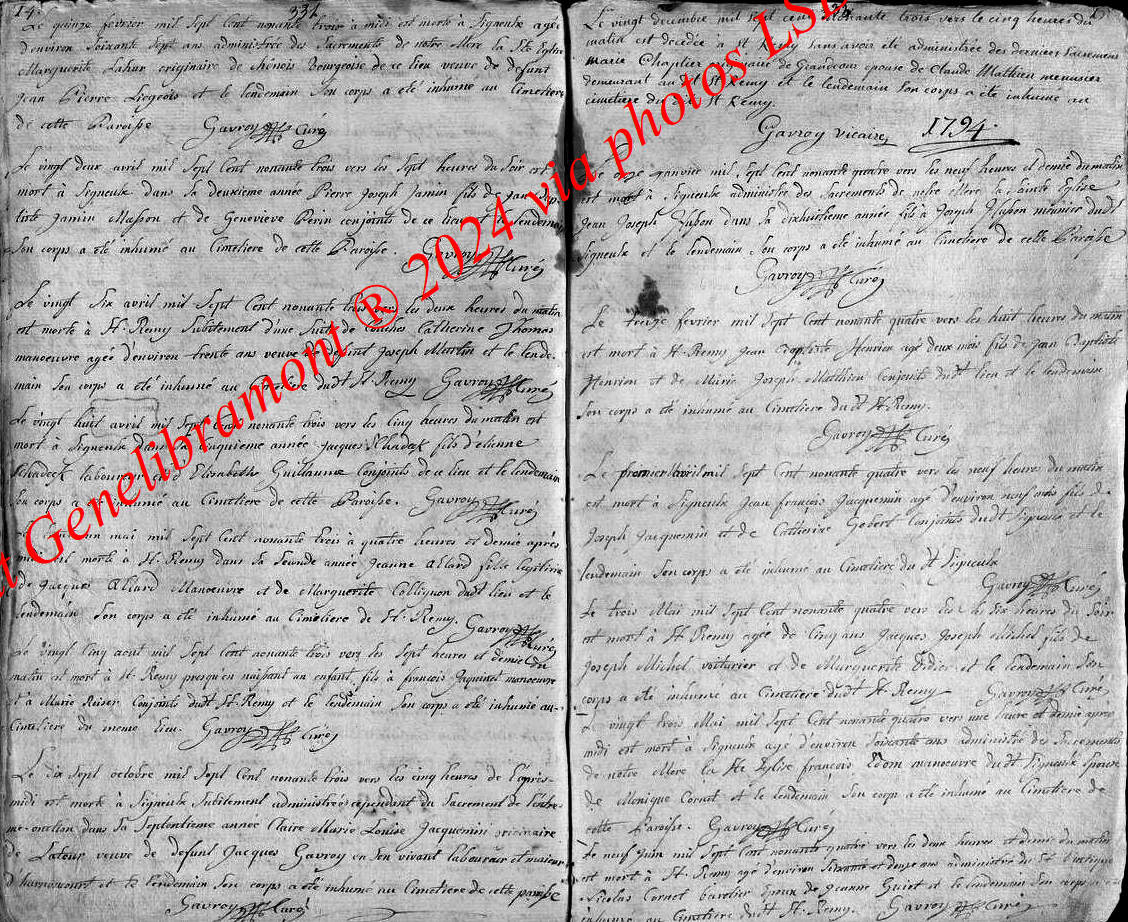 14.
334
Le quinze fevrier mil Sept Cent nonante trois à midi est morte à Signeulx agée
d'environ Soixante Sept ans administrée des Sacrements de notre Mere la Ste Eglise
Marguerite Lahur originaire de Bourgeoise de ce lieu veuve de defunt
Jean Pierre Liegeois et le lendemain Son corps a été inhumé au Cimetiere
de cette Paroisse Gavroy Curé
Le vingt deux avril mil Sept Cent nonante trois vers les Sept heures du Soir est
mort à Signeulx dans Sa deuxieme année Pierre Joseph Jamin fils de Jean Bap-
tiste Jamin Masson et de Genevieve Perin conjoints de ce lieu et le lendemain
Son corps a été inhumé au Cimetiere de cette Paroisse. Gavroy Curé
Le vingt Six avril mil Sept Cent nonante trois vers les deux heures du matin
est morte à St. Remy Subitement d'une Suite de Couches Catherine Thomas
manoeuvre agée d'environ trente ans veuve de defunt Joseph Martin et le lende-
main Son corps a été inhumé au Cimetiere dudt St. Remy Gavroy Curé
Le vingt huit avril mil Sept Cent nonante trois vers les Cinq heures du matin est
mort à Signeulx dans Sa Cinquieme année Jacques Schadeck fils d'etienne
Schadeck laboureur et d'Elizabeth Guillaume Conjoints de ce lieu et le lendemain
Son corps a été inhumé au Cimetiere de cette Paroisse. Gavroy Curé
un mai mil Sept Cent nonante trois à quatre heures et demie après
midi est morte à St. Remy dans Sa Seconde année Jeanne Allard fille legitime
de Jacques Allard Manoeuvre et de Marguerite Collignon dudt lieu et le
lendemain Son corps a été inhumé au Cimetiere de St. Remy. Gavroy Curé
Le vingt Cinq aout mil Sept Cent nonante trois vers les Sept heures et demie du
matin est mort à St Remy presqu'en naissant un enfant fils à françois Jaquinet manoeuvre
et à Marie Reiser Conjoints dudt St. Remy et le lendemain Son corps a été inhumé au-
Cimetiere du meme lieu. Gavroy Curé
Le dix Sept octobre mil Sept Cent nonante trois vers les cinq heures de l'après-
midi est morte à Signeulx Subitement administrée cependant du Sacrement de l'extre-
me-onction dans Sa Septentieme année Claire Marie Louise Jacquemin originaire
de Latour veuve de defunt Jacques Gavroy en Son vivant laboureur et maieur
d'harnoncourt et le lendemain Son corps a été inhumé au Cimetiere de cette paroisse
Gavroy Curé
Le vingt decembre mil Sept cent nonante trois vers le cinq heures du
matin est decedée à St Remy Sans avoir été administrée des derniers Sacremens
marie Chaplier originaire de Grandcour epouse de Claude Mathieu menusier
demeurant au dt St Remy et le lendemain Son corps a été inhumé au
cimetiere du dt St Remy.
Gavroy vicaire
1794.
Le onze janvier mil Sept Cent nonante quatre vers les neuf heures et demie du matin
est mort à Signeulx administré des Sacrements de notre Mere la Sainte Eglise
Jean Joseph dans Sa dixhuitieme année fils à Joseph meunier dudt
Signeulx et le lendemain Son corps a été inhumé au Cimetiere de cette Paroisse
Gavroy Curé
Le treize fevrier mil Sept Cent nonante quatre vers les huit heures du matin
est mort à St. Remy Jean Baptiste Henrion agé deux mois fils de Jean Baptiste
Henrion et de Marie Joseph Matthieu Conjoints dudt lieu et le lendemain
Son corps a été inhumé au Cimetiere du dt St. Remy
Gavroy Curé
Le premier avril mil Sept Cent nonante quatre vers les neuf heures du matin
est mort à Signeulx Jean François Jacquemin agé d'environ neuf mois fils de
Joseph Jacquemin et de Catherine Gobert Conjoints dudt Signeulx et le
lendemain Son corps a été inhumé au Cimetiere du dt Signeulx
Gavroy Curé
Le trois Mai mil Sept Cent nonante quatre vers les Six heures du Soir
est mort à St Remy agée de Cinq ans Jacques Joseph Michel fils de
Joseph Michel voiturier et de Marguerite Didier et le lendemain Son
corps a été inhumé au Cimetiere dudt St. Remy Gavroy Curé
Le vingt trois Mai mil Sept Cent nonante quatre vers une heure et demie après
midi est mort à Signeulx agé d'environ Soixante ans administré des Sacrements
de notre Mere la Ste Eglise françois Edom manoeuvre dudt Signeulx Epoux
de Monique Cornet et le lendemain Son corps a été inhumé au Cimetiere de
cette Paroisse. Gavroy Curé
Le neuf Juin mil Sept Cent nonante quatre vers les deux heures et demie du matin
est mort à St. Remy agé d'environ Soixante et douze ans administré du St
Nicolas Cornet Epoux de Jeanne et le lendemain Son corps a été
inhumé au Cimetiere dudt St. Remy. Gavroy Curé
Genelibramont ® 2024 via photos LSD